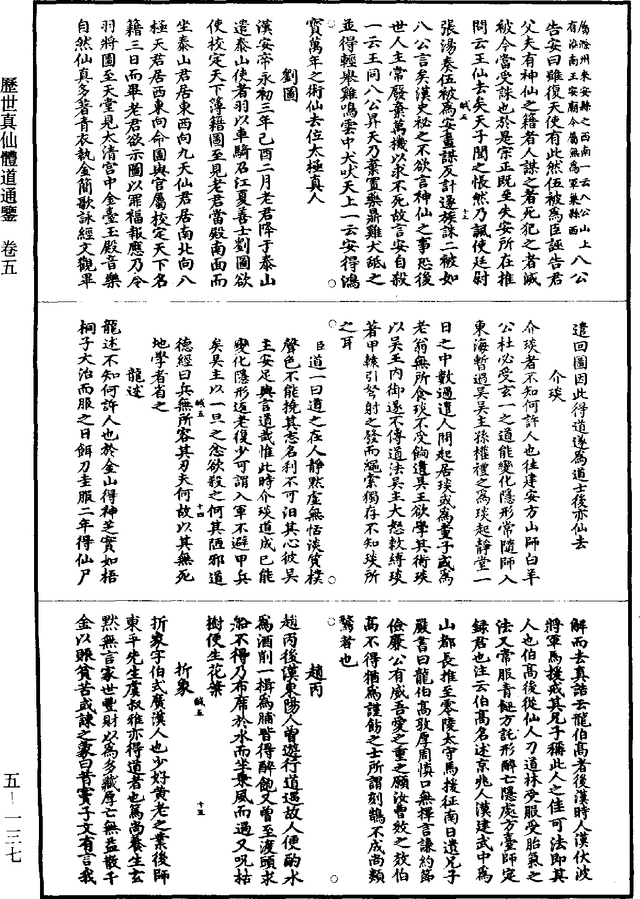 歷世真仙體道通鑒 卷五
五—一三七
屬滁州來安縣之西南一云八公山上
有淮南王安廟今屬無為軍巢縣西八公
告安曰雖復天使有此然伍被為臣誣告君
父夫有神仙之籍者人謀之者死犯之者滅
被今當受誅也於是宗正既至失安所在推
問云王仙去矣天子聞之悵然乃諷使廷尉
張湯奏伍被為安畫謀反計遂族誅二被如
八公言矣漢史祕之不欲言神仙之事恐後
世人主常廢棄萬機以求不死故言安自殺
一云王同八公昇天乃棄置藥鼎雞犬舐之
並得輕舉雞鳴雲中犬吠天上一云安得鴻
寶萬年之術仙去位太極真人
劉圖
漢安帝永初三年己酉二月老君降于泰山
遣泰山使者羽以車騎召江夏善士劉圖欲
使校定天下簿籍圖至見老君當殿南面而
坐泰山君居東西向九天仙君居南北向八
極天君居西東向命圖與官屬校定天下名
籍三日而畢老君欲示圖以罪福報應乃令
羽將圖至天堂見太清宮中金臺玉殿音樂
自然仙真多著青衣執金簡歌詠經文觀畢
遣回圖因此得道遂為道士後亦仙去
介琰
介琰者不知何許人也往建安方山師白羊
公杜必受玄一之道能變化隱形常隨師入
東海暫過吳吳主孫權禮之為琰起靜堂一
日之中數過遣人問起居琰或為童子或為
老翁無所食琰不受餉遺具王欲學其術琰
以吳王內御遂不傳道法吳主大怒敕縛琰
著甲轅引弩射之發而繩索獨存不知琰所
之耳
臣道一曰道之在人靜默虛無恬淡質樸
聲色不能撓其志名利不可汨其心彼吳
主安足與言道哉惟此時介琰道成已能
變化隱形返老復少可謂入軍不避甲兵
矣吳主以一旦之忿欲殺之何其陋邪道
德經曰兵無所容其刃夫何故以其無死
地學者省之
龍述
龍述不知何許人也於金山得神芝實如梧
桐子大治而服之日餌刀圭服二年得仙尸
解而去真誥云龍伯高者後漢時人漢伏波
將軍馬援戒其兄子稱此人之佳可法即其
人也伯高後從仙人刁道林受服受胎氣之
法又常服青䭀方託形醉亡隱處方臺師定
錄君也注云伯高名述京兆人漢建武中為
山都長推至零陵太守馬援征南日遺兄子
嚴書曰龍伯高敦厚周慎口無擇言謙約節
儉廉公有威吾愛之重之願汝曹效之效伯
高不得猶為謹飭之士所謂刻鵠不成尚類
鶩者也
趙丙
趙丙後漢東陽人曾遊行道遇故人便酌水
為酒削一楫為脯皆得醉飽又曾至渡頭求
船不得乃布席於水而坐乘風而過又呪枯
樹便生花葉
折象
折象字伯式廣漢人也少好黃老之業後師
東平先生虞叔雅亦得道者也篤尚養生玄
默無言家世豐財以為多藏厚亡無益散千
金以賑貧苦或諫之象曰昔竇子文有言我